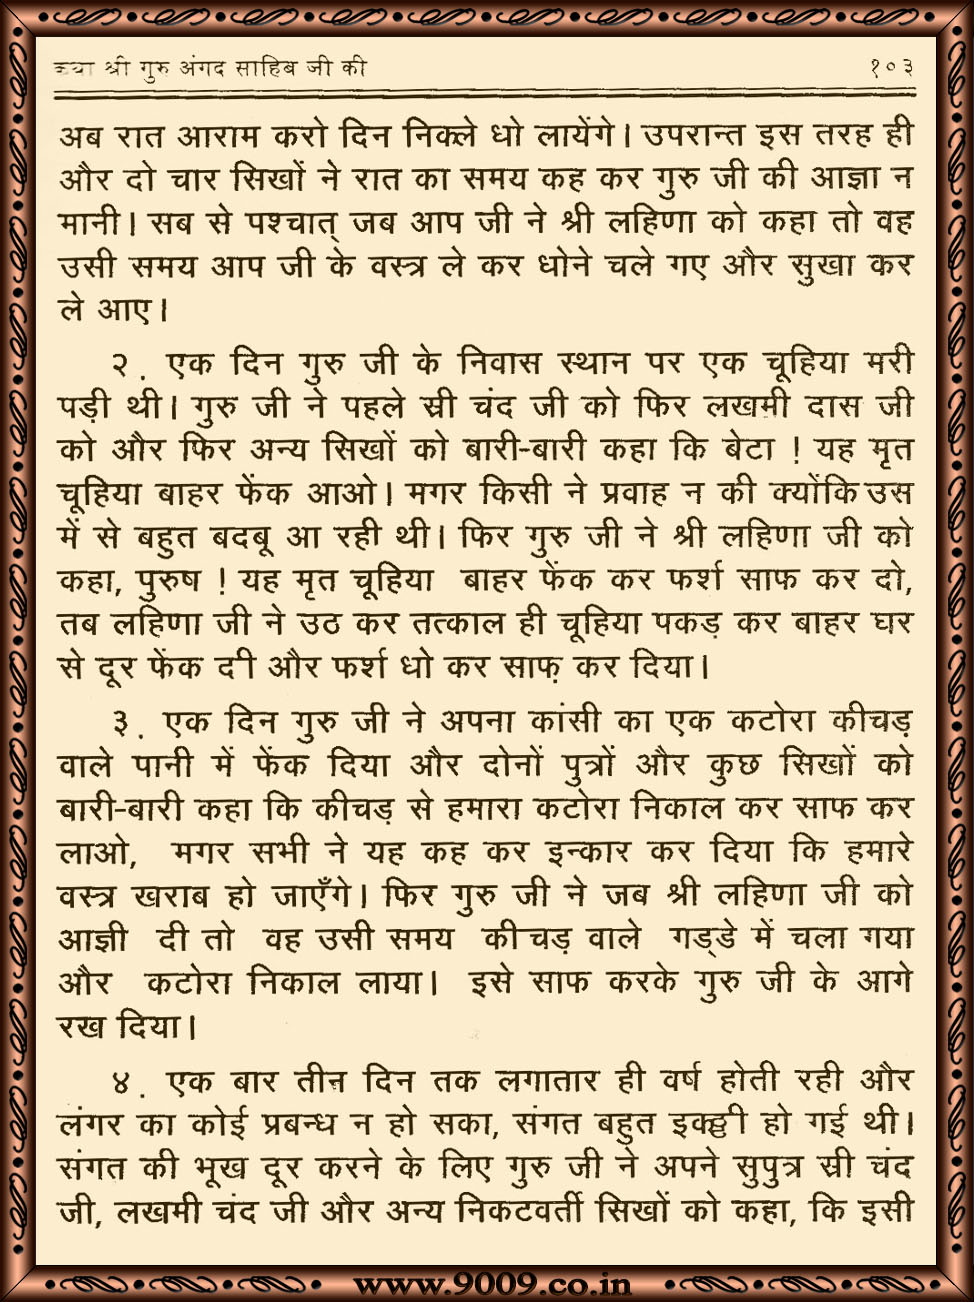 कथा श्री गुरु अंगद साहिब जी की १०३
अब रात आराम करो दिन निकले धो लायेंगे। उपरान्त इस तरह ही
और दो चार सिखों ने रात का समय कह कर गुरु जी की आज्ञा न
मानी। सब से पश्चात् जब आप जी ने श्री लहिणा को कहा तो वह
उसी समय आप जी के वस्त्र ले कर धोने चले गए और सुखा कर
ले आए।
२. एक दिन गुरु जी के निवास स्थान पर एक चूहिया मरी
पड़ी थी। गुरु जी ने पहले स्री चंद जी को फिर लखमी दास जी
को और फिर अन्य सिखों को बारी-बारी कहा कि बेटा ! यह मृत
चूहिया बाहर फेंक आओ। मगर किसी ने प्रवाह न की क्योंकि उस
में से बहुत बदबू आ रही थी। फिर गुरु जी ने श्री लहिणा जी को
कहा, पुरुष ! यह मृत चूहिया बाहर फेंक कर फर्श साफ कर दो,
तब लहिणा जी ने उठ कर तत्काल ही चूहिया पकड़ कर बाहर घर
से दूर फेंक दी और फर्श धो कर साफ़ कर दिया।
३. एक दिन गुरु जी ने अपना कांसी का एक कटोरा कीचड़
वाले पानी में फेंक दिया और दोनों पुत्रों और कुछ सिखों को
बारी-बारी कहा कि कीचड़ से हमारा कटोरा निकाल कर साफ कर
लाओ, मगर सभी ने यह कह कर इन्कार कर दिया कि हमारे
वस्त्र खराब हो जाएँगे। फिर गुरु जी ने जब श्री लहिणा जी को
आज्ञी दी तो वह उसी समय कीचड़ वाले गड्डे में चला गया
और कटोरा निकाल लाया। इसे साफ करके गुरु जी के आगे
रख दिया।
४. एक बार तीन दिन तक लगातार ही वर्ष होती रही और
लंगर का कोई प्रबन्ध न हो सका, संगत बहुत इक्ठ्ठी हो गई थी।
संगत की भूख दूर करने के लिए गुरु जी ने अपने सुपुत्र स्री चंद
जी, लखमी चंद जी और अन्य निकटवर्ती सिखों को कहा, कि इसी
www.9009.co.in